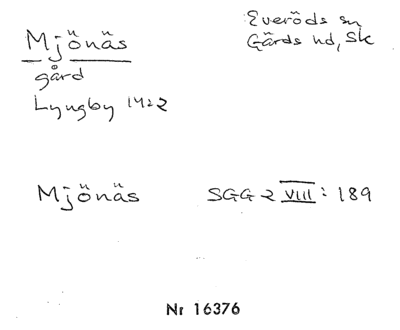 Mjönäs
gård
Lyngby 1422
Everöds sn
Gärds hd, Sk
Mjönäs SGG 2 VIII: 189
Nr 16376